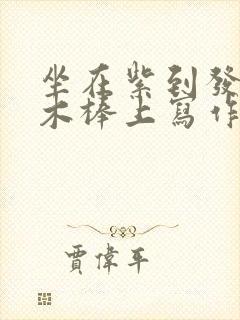 坐在紫到發
木棒上寫作
賈偉平